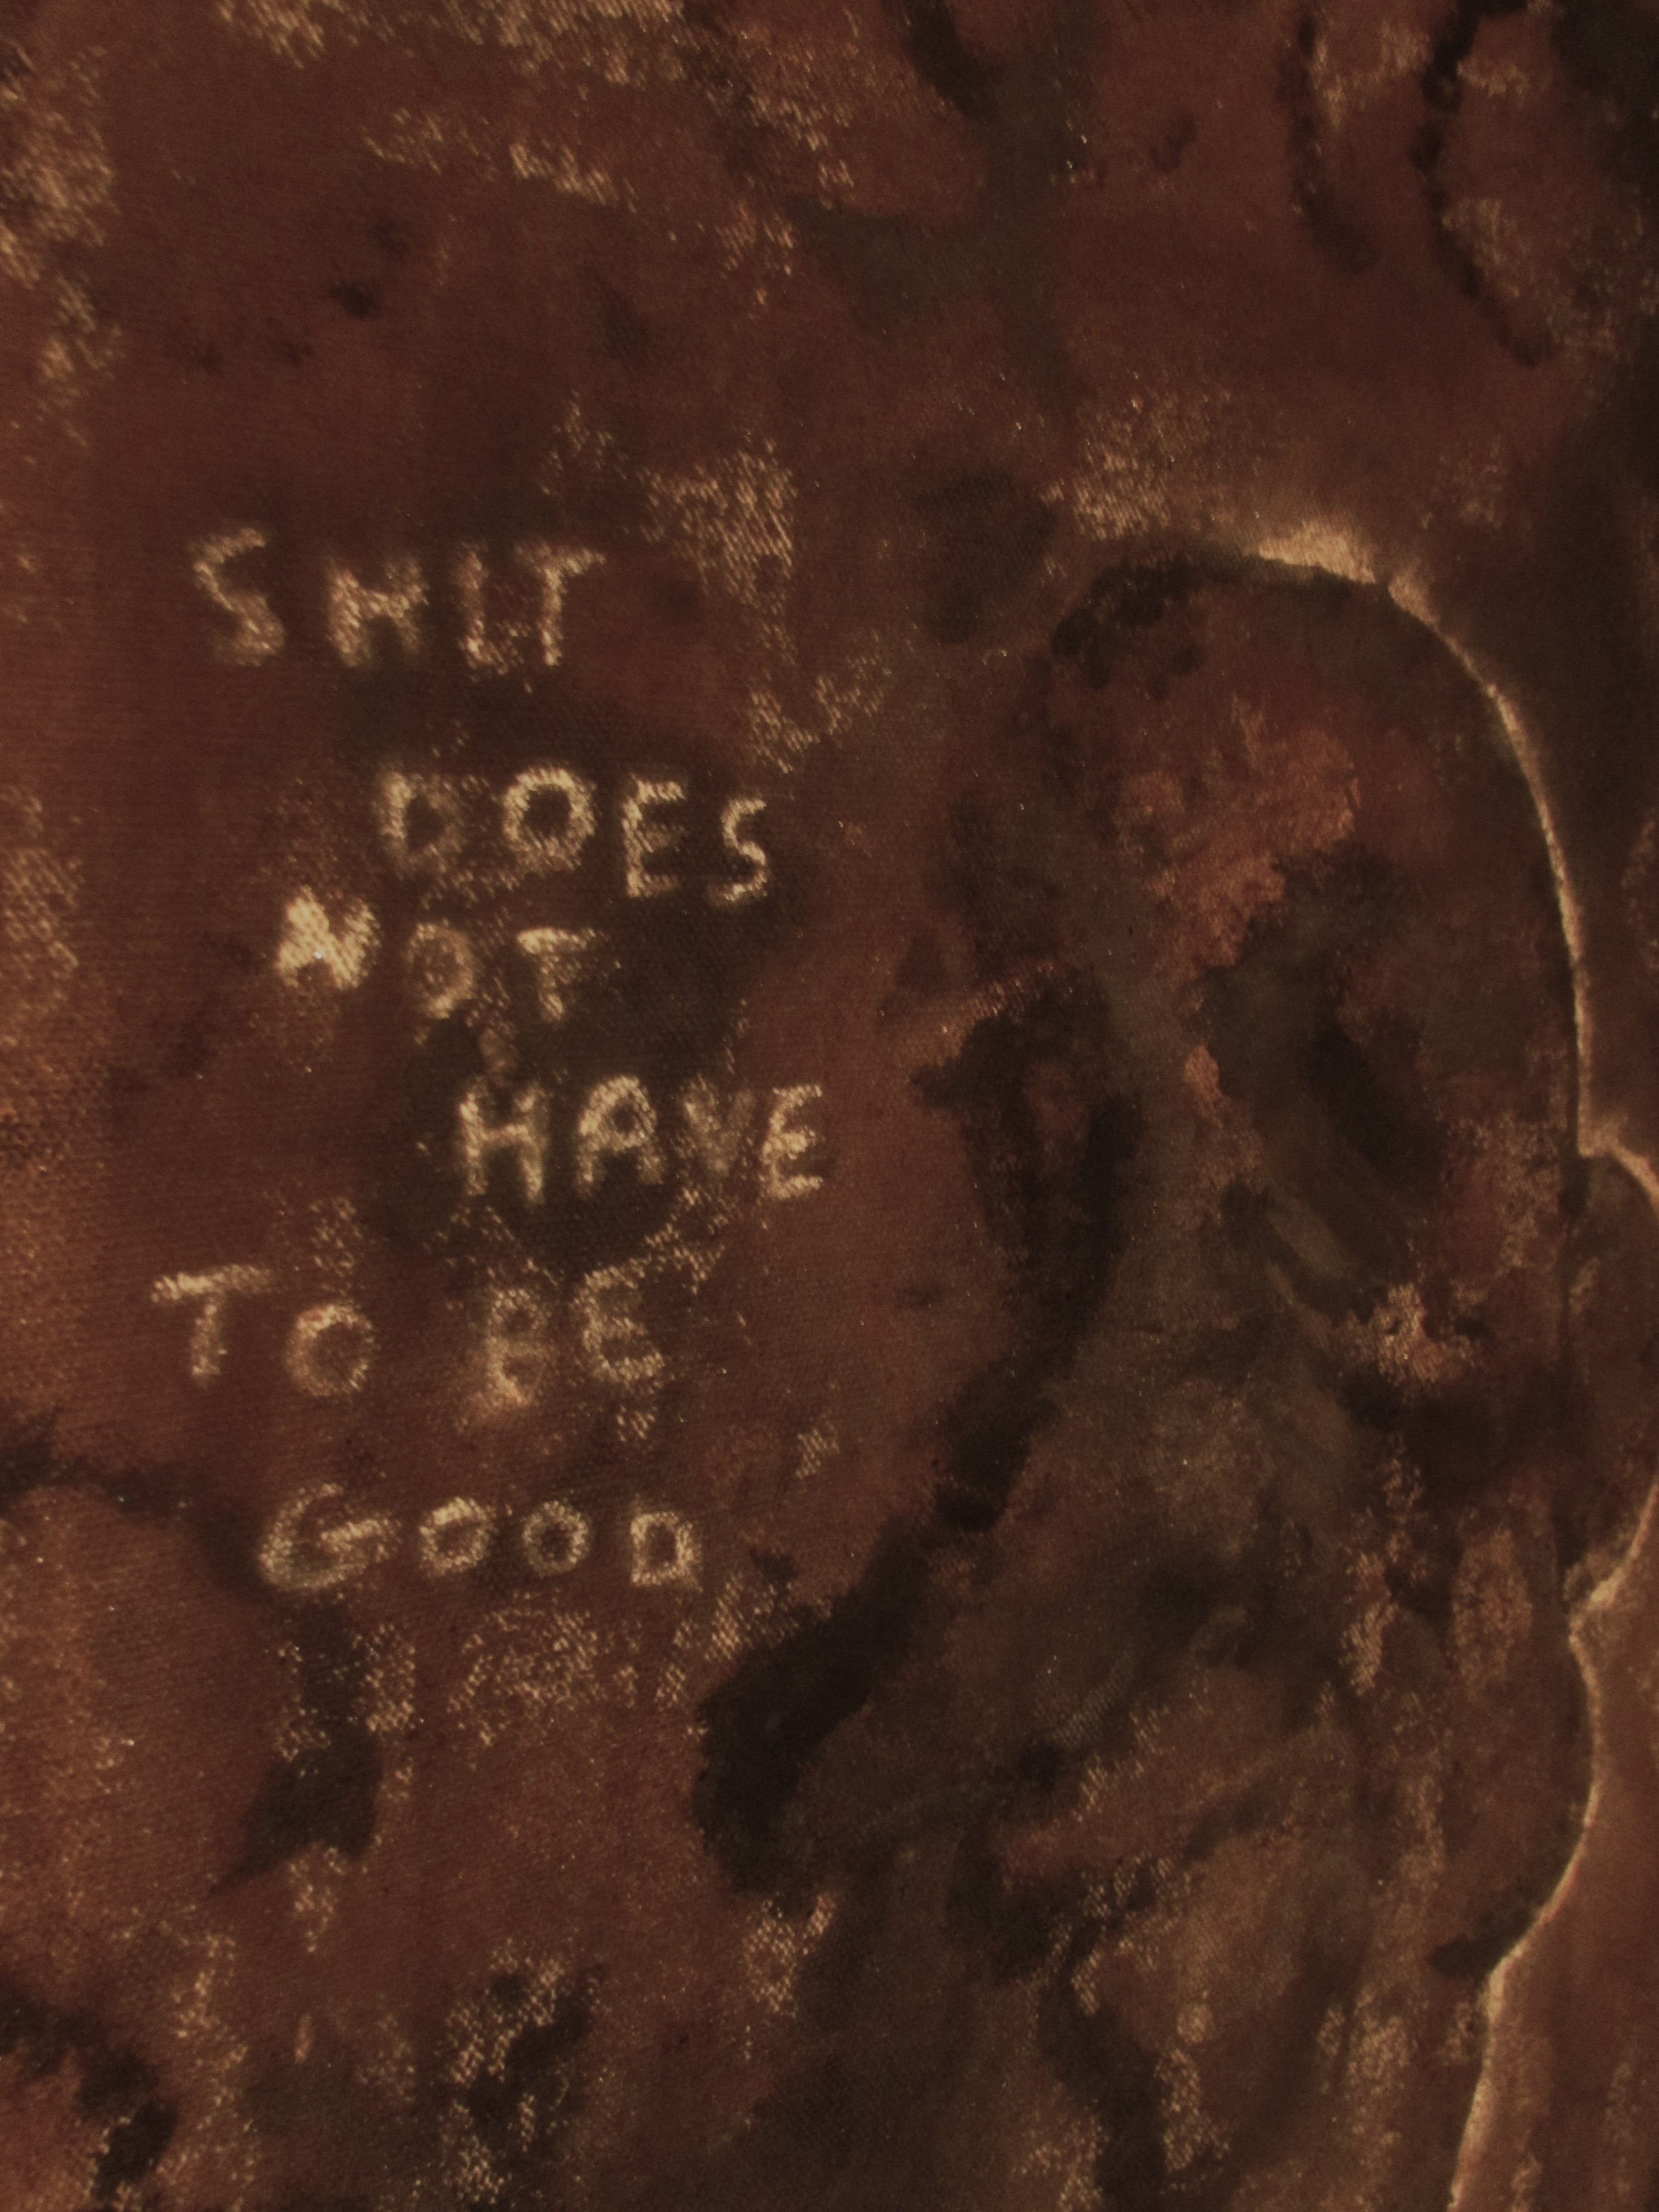 SHIT
DOES
NOT
HAVE
TO BE
GOOD